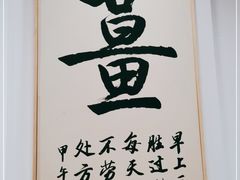 薑
早上
胜过
每天
不劳
处方
甲午